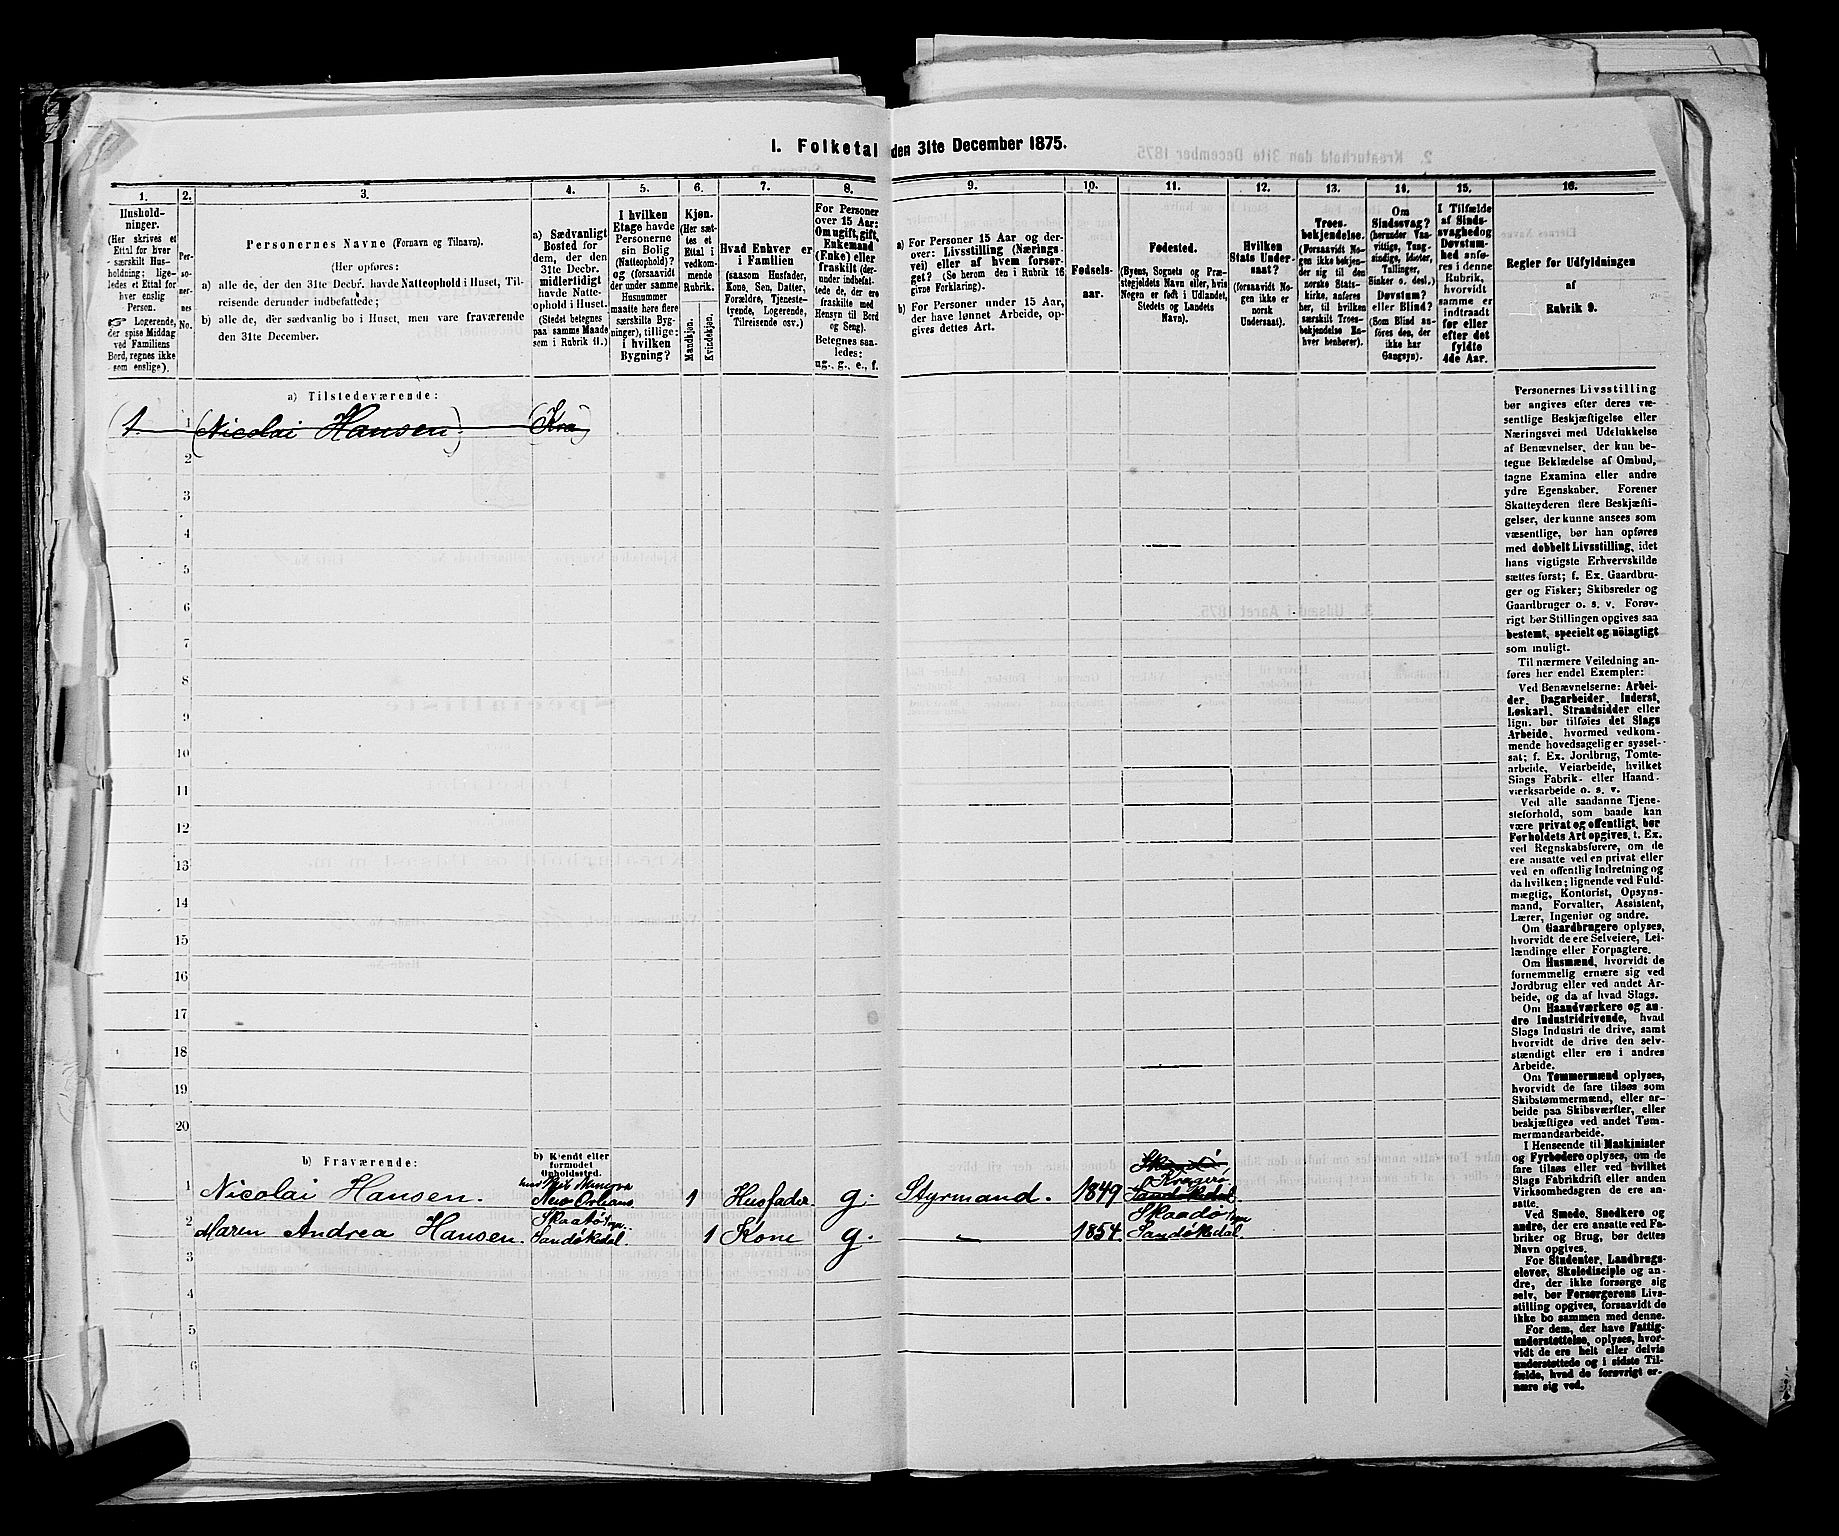 I. Folketal den 31te December 1875.
1.
2.
3.
4.
5.
6.
7.
8.
9.
10.
11.
12.
13.
14.
15.
16.
Hushold-
ninger.
(Her skrives et
Ettal for hver
særskilt Hus-
holdning; lige-
ledes et Ettal for
hver enslig
Person.
☞ Logerende,
der spise Middag
ved Familiens
Bord, regnes ikke
som enslige).
Per-
so-
ner-
nes
No.
Personernes Navne (Fornavn og Tilnavn).
(Her opføres:
a) alle de, der den 31te Decbr. havde Natteophold i Huset, Til-
reisende derunder indbefattede;
b) alle de, der sædvanlig bo i Huset, men vare fraværende
den 31te December.
a) Sædvanligt
Bosted for
dem, der den
31te Decbr.
midlertidigt
havde Natte-
ophold i Huset.
(Stedet betegnes
paa samme Maade
som i Rubrik 11.)
I hvilken
Etage havde
Personerne
sin Bolig
(Natteophold)?
og (forsaavidt
der under samme
Husnummer
maatte høre flere
særskilte Byg-
ninger), tillige:
i hvilken
Bygning?
Kjøn.
(Her sæt-
tes et
Ettal i
vedkom-
mende
Rubrik.
Mandkjøn.
Kvindekjøn.
Hvad Enhver er
i Familien
(saasom Husfader,
Kone, Søn, Datter,
Forældre, Tjeneste-
tyende, Logerende,
Tilreisende osv.)
For Personer
over 15 Aar:
Om ugift, gift,
Enkemand
(Enke) eller
fraskilt (der-
under indbefat-
tede de, der ere
fraskilte med
Hensyn til Bord
og Seng).
Betegnes saa-
ledes:
ug., g., e., f.
a) For Personer 15 Aar og der-
over: Livsstilling (Nærings-
vei) eller af hvem forsør-
get? (Se herom den i Rubrik 16
givne Forklaring).
b) For Personer under 15 Aar,
der have lønnet Arbeide, op-
gives dettes Art.
Fødsels-
aar.
Fødested.
(Byens, Sognets og Præ-
stegjeldets Navn eller, hvis
Nogen er født i Udlandet,
Stedets og Landets
Navn).
Hvilken
Stats Under-
saat?
(forsaavidt No-
gen ikke er
norsk
Undersaat).
Troes-
bekjendelse.
(Forsaavidt No-
gen ikke bekjen-
der sig til den
norske Stats-
kirke, anføres
her, til hvilken
særskilt Troes-
bekjendelse En-
hver henhører).
Om
Sindssvag?
(herunder Van-
vittige, Tung-
sindige, Idioter,
Tullinger,
Sinker o. desl.)
Døvstum?
eller Blind?
(Som Blind an-
føres den, der
ikke har
Gangsyn).
I Tilfælde
af Sinds-
svaghed og
Døvstum-
hed anfø-
res i denne
Rubrik,
hvorvidt
samme er
indtraadt
før eller
efter det
fyldte
4de Aar.
Regler for Udfyldningen
af
Rubrik 9.
a) Tilstedeværende:
(1. 1 (Nicolai Hansen) (Kra)
2
3
4
5
6
7
8
9
10
11
12
13
14
15
16
17
18
19
20
b) Fraværende:
b) Kjendt eller
formodet
Opholdssted.
1 Nicolai Hansen. New Orleans 1 Husfader g. Styrmand. 1849 Kragerø
2 Maren Andrea Hansen. Skaatø Sogn Sandøkedal. 1 Kone g. — 1854 Skaadø Sogn Sandøkedal.
3
4
5
6
Personernes Livsstilling
bør angives efter deres væ-
sentlige Beskjæftigelse eller
Næringsvei med Udelukkelse
af Benævnelser, der kun be-
tegne Beklædelse af Ombud,
tagne Examina eller andre
ydre Egenskaber. Forener
Skatteyderen flere Beskjæfti-
gelser, der kunne ansees som
væsentlige, bør han opføres
med dobbelt Livsstilling, idet
hans vigtigste Erhvervskilde
sættes først; f. Ex. Gaardbru-
ger og Fisker; Skibsreder og
Gaardbruger o. s. v. Forøv-
rigt bør Stillingen opgives saa
bestemt, specielt og nöiagtigt
som muligt.
Til nærmere Veiledning an-
føres her endel Exempler:
Ved Benævnelserne: Arbei-
der, Dagarbeider, Inderst,
Løskarl, Strandsidder eller
lign. bør tilføies det Slags
Arbeide, hvormed vedkom-
mende hovedsagelig er syssel-
sat; f. Ex. Jordbrug, Tomte-
arbeide, Veiarbeide, hvilket
Slags Fabrik- eller Haand-
værksarbeide o. s. v.
Ved alle saadanne Tjene-
steforhold, som baade kan
være privat og offentligt, bør
Forholdets Art opgives, t. Ex.
ved Regnskabsførere, om de
ere ansatte ved en privat eller
ved en offentlig Indretning og
da hvilken; lignende ved Fuld-
mægtig, Kontorist, Opsyns-
mand, Forvalter, Assistent,
Lærer, Ingeniør og andre.
Om Gaardbrugere oplyses,
hvorvidt de ere Selveiere, Lei-
lændinge eller Forpagtere.
Om Husmænd, hvorvidt de
fornemmelig ernære sig ved
Jordbrug eller ved andet Ar-
beide, og da af hvad Slags.
Om Haandværkere og an-
dre Industridrivende, hvad
Slags Industri de drive, samt
hvorvidt de drive den selv-
stændigt eller ere i andres
Arbeide.
Om Tømmermænd oplyses,
hvorvidt de fare tilsøs som
Skibstømmermænd, eller ar-
beide paa Skibsværfter, eller
beskjæftiges ved andet Tøm-
mermandsarbeide.
I Henseende til Maskinister
og Fyrbødere oplyses, om de
fare tilsøs eller ved hvilket
Slags Fabrikdrift eller anden
Virksomhedsgren de ere an-
satte.
Ved Smede, Snedkere og
andre, der ere ansatte ved Fa-
briker og Brug, bør dettes
Navn opgives.
For Studenter, Landbrugs-
elever, Skoledisciple og an-
dre, der ikke forsørge sig
selv, bør Forsørgerens Livs-
stilling opgives, forsaavidt de
ikke bo sammen med denne.
For dem, der have Fattig-
understøttelse, oplyses, hvor-
vidt de ere helt eller delvis
understøttede og i sidste Til-
fælde, hvad de forøvrigt er-
nære sig ved.